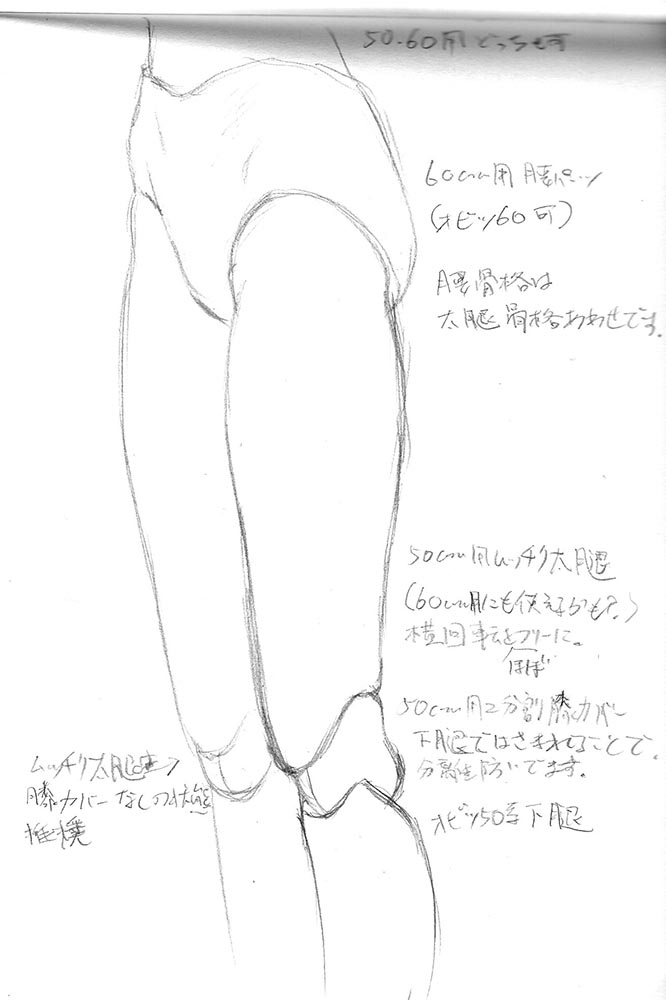 50-60用どっちも可
60cm用腰パーツ
(オビツ60可)
腰骨格は
太腿骨格あわせです。
50cm用ムッチリ太腿
(60cm用にも使えるかも?)
横回転をフリーに。
ほぼ
50cm用2分割膝カバー
下腿ではさまれることで、
分離を防いでます。
オビツ50等下腿
ムッチリ太腿
膝カバーなしの状態
推奨